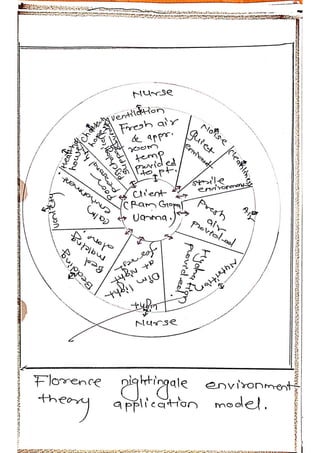 Nurse
ventilation
Fresh air
& appr.
room
temp
provided
to pt.
Noise
Quiet
environment
cleanliness
sterile
environment
Air
Fresh
air
Provided
Nutrition
Hydration
Provided.
light
Dim light
at night
Bedding
Bed
making
done.
variety
environment.
healthy
house
Client
(Ram Gopal
Nurse
Florence nightingale environment
theory application model.